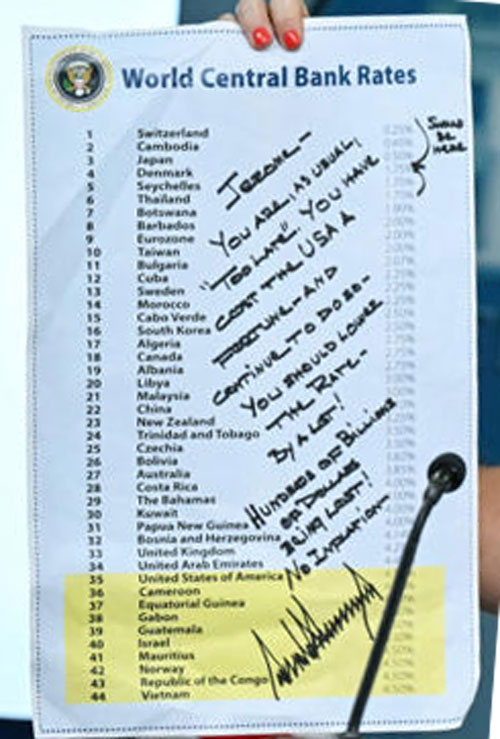 World Central Bank Rates
1 Switzerland 0.25%
2 Cambodia
3 Japan
4 Denmark
5 Seychelles
6 Thailand
7 Botswana
8 Barbados
9 Eurozone 2.00%
10 Taiwan 2.00%
11 Bulgaria 2.07%
12 Cuba 2.25%
13 Sweden
14 Morocco 2.25%
15 Cabo Verde 2.50%
16 South Korea 2.50%
17 Algeria
18 Canada 2.75%
19 Albania
20 Libya
21 Malaysia
22 China
23 New Zealand
24 Trinidad and Tobago
25 Czechia
26 Bolivia
27 Australia 3.85%
28 Costa Rica 4.00%
29 The Bahamas
30 Kuwait
31 Papua New Guinea
32 Bosnia and Herzegovina
33 United Kingdom
34 United Arab Emirates
35 United States of America
36 Cameroon
37 Equatorial Guinea
38 Gabon
39 Guatemala
40 Israel
41 Mauritius 4.50%
42 Norway 4.50%
43 Republic of the Congo 4.50%
44 Vietnam 4.50%
SHOULD
BE
HERE
JEROME—
YOU ARE, AS USUAL,
"TOO LATE". YOU HAVE
COST THE USA A
FORTUNE—AND
CONTINUE TO DO SO—
YOU SHOULD LOWER
THE RATE—
BY A LOT!
HUNDREDS OF BILLIONS
OF DOLLARS
BEING LOST!
NO INFLATION